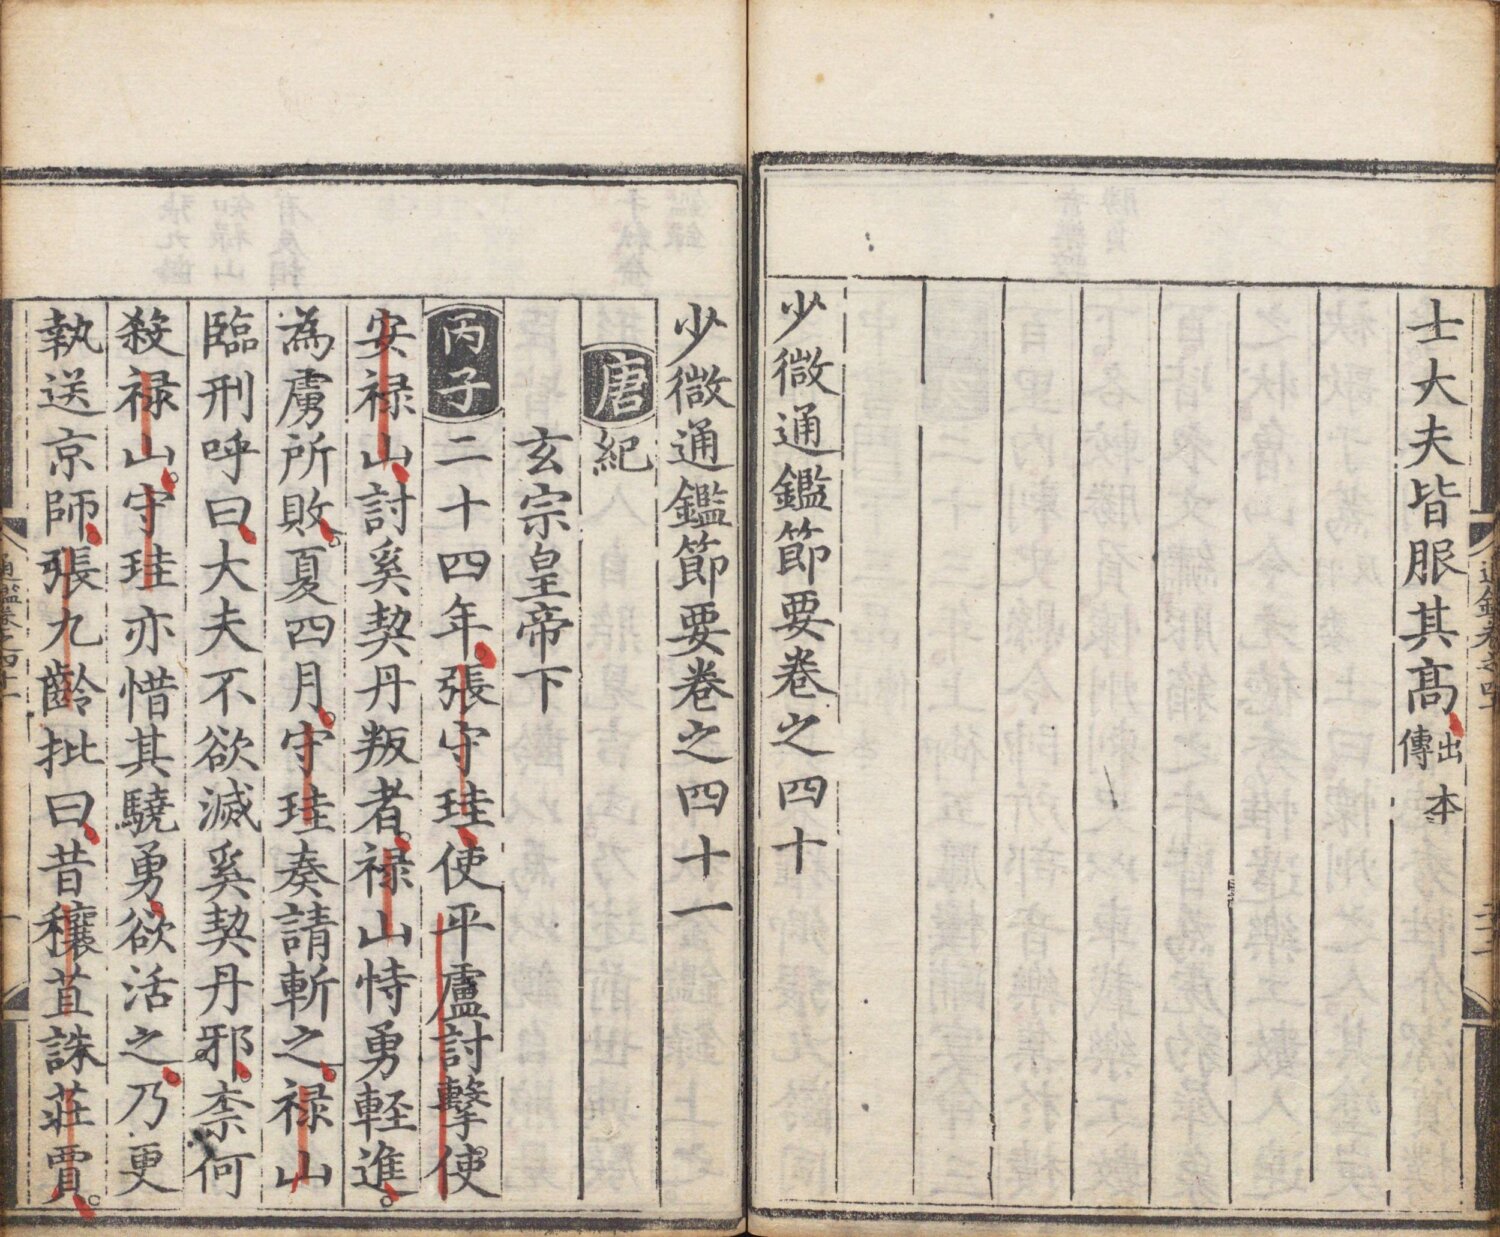 士大夫皆服其高出本傳
少微通鑑節要卷之四十
少微通鑑節要卷之四十一
唐紀
玄宗皇帝下
丙子二十四年張守珪使平盧討擊使
安祿山討奚契丹叛者祿山恃勇輕進
為虜所敗夏四月守珪奏請斬之祿山
臨刑呼曰大夫不欲滅奚契丹邪柰何
殺祿山守珪亦惜其驍勇欲活之乃更
執送京師張九齡批曰昔穰苴誅莊賈